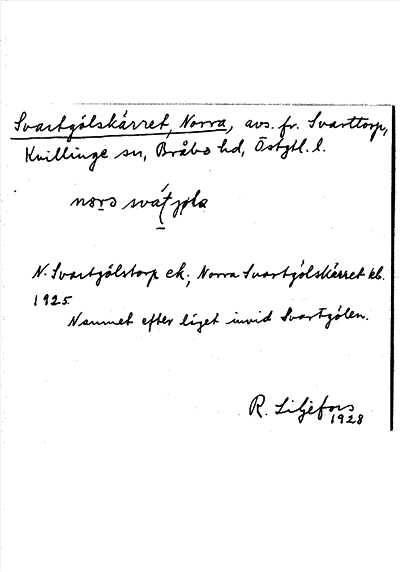 Svartgölskärret, Norra, avs. fr. Svarttorp,
Kvillinge sn, Bråbo hd, Östgtl. l.
N. Svartgölstorp ek.; Norra Svartgölskärret kb.
1925.
Namnet efter läget invid Svartgölen.
R. Liljefors
1928